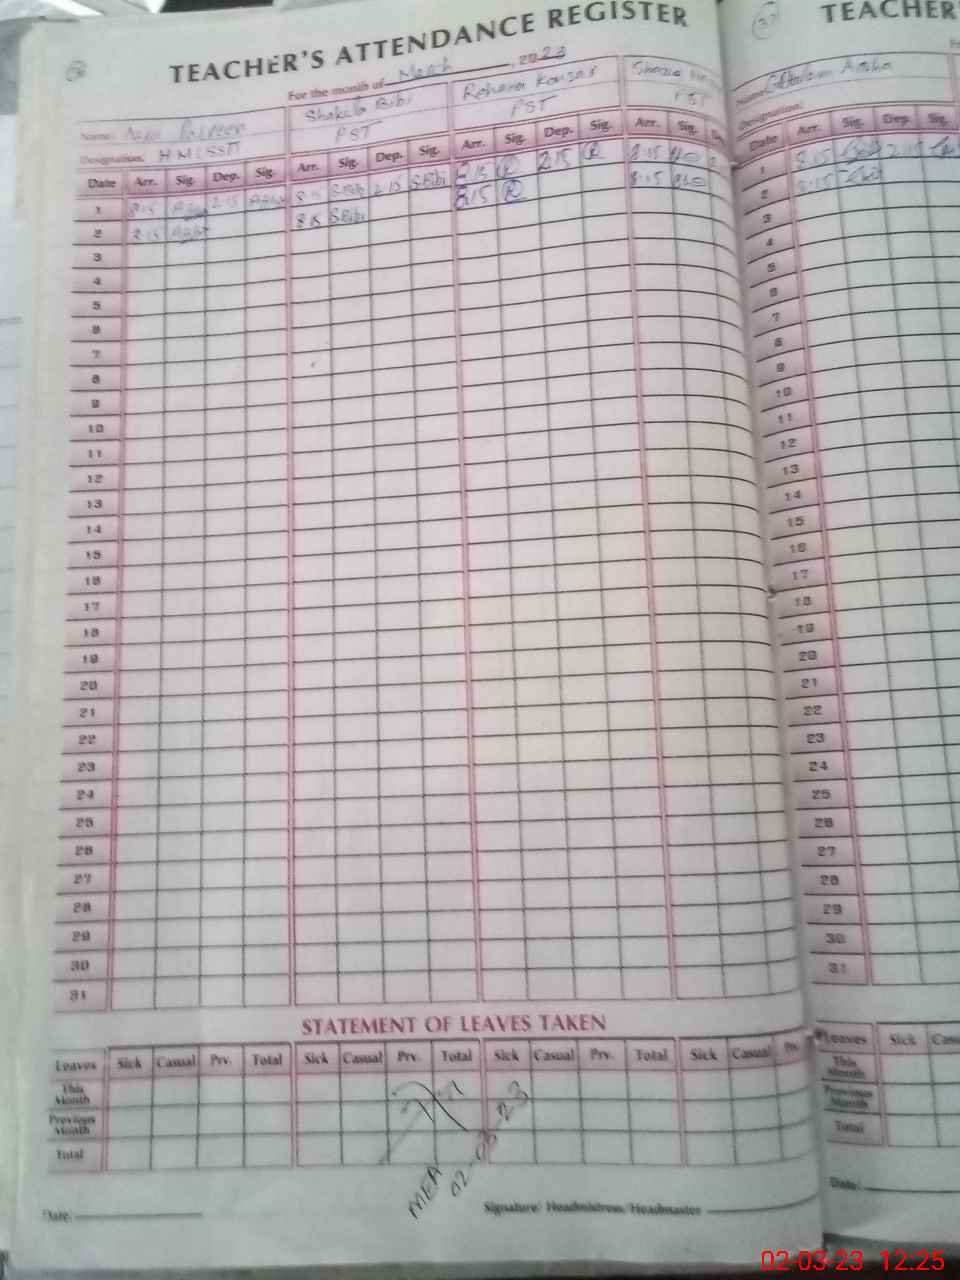 36
TEACHER'S ATTENDANCE REGISTER
For the month of March, 2023
Name: Parveen Shakila Bibi Rehana Kousar
Designation: HM(SST) PST PST PST
Date Arr. Sig. Dep. Sig. Arr. Sig. Dep. Sig. Arr. Sig. Dep. Sig. Arr. Sig.
1 8:15 2:15 8:15 SBibi 2:15 SBibi 8:15 R 2:15 R 8:15
2 8:15 8:15 SBibi 8:15 R 8:15
3
4
5
6
7
8
9
10
11
12
13
14
15
16
17
18
19
20
21
22
23
24
25
26
27
28
29
30
31
STATEMENT OF LEAVES TAKEN
Leaves Sick Casual Prv. Total Sick Casual Prv. Total Sick Casual Prv. Total Sick Casual Prv.
This Month
Previous Month
Total
MEA
02-03-23
Date: Signature: Headmistress/Headmaster
37
TEACHER
Name:
Designation:
Date Arr. Sig. Dep. Sig.
1 8:15 2:15
2 8:15
3
4
5
6
7
8
9
10
11
12
13
14
15
16
17
18
19
20
21
22
23
24
25
26
27
28
29
30
31
Leaves Sick
This Month
Previous Month
Total
Date:
02-03-23 12:25